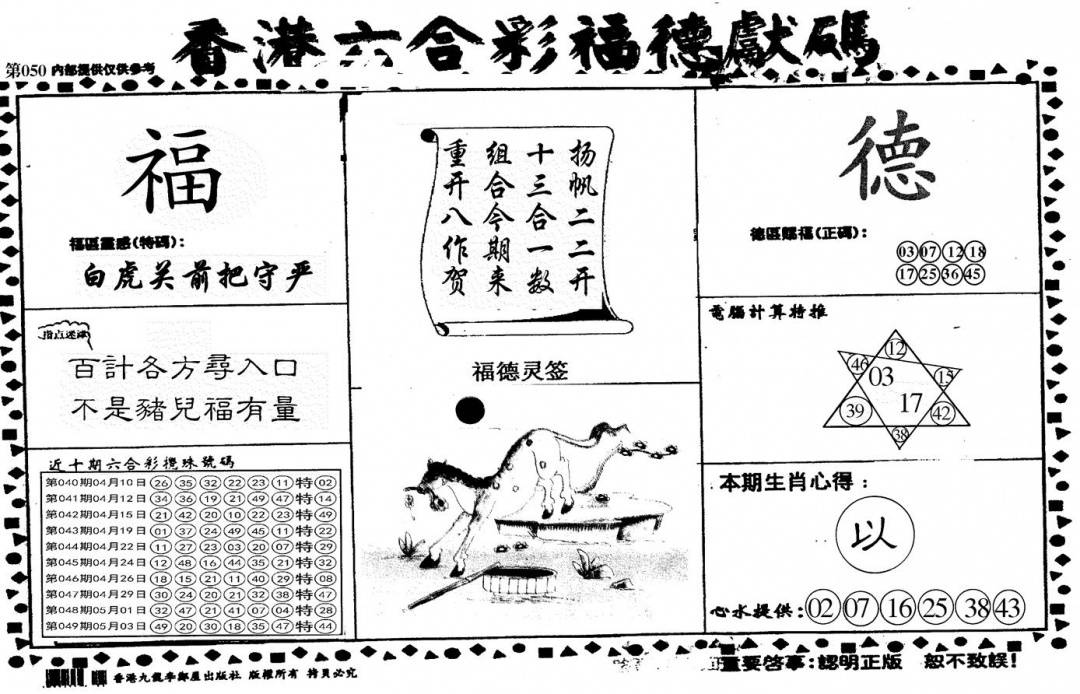 香港六合彩福德獻碼
第050 内部提供仅供参考
福
福區靈感(特碼):
白虎关前把守严
指点迷津
百計各方尋入口
不是豬兒福有量
近十期六合彩攪珠號碼
第040期04月10日 26 35 32 22 23 11 特 02
第041期04月12日 34 36 19 21 49 47 特 14
第042期04月15日 21 42 20 10 22 23 特 49
第043期04月19日 01 37 24 49 45 11 特 22
第044期04月22日 11 27 23 03 20 07 特 29
第045期04月24日 12 48 16 44 35 21 特 32
第046期04月26日 18 15 21 11 40 29 特 08
第047期04月29日 30 24 20 21 32 38 特 47
第048期05月01日 32 47 21 41 07 04 特 28
第049期05月03日 49 20 30 18 35 47 特 44
扬帆二二开
十三合一数
组合今期来
重开八作贺
福德灵签
德
德區賜福(正碼):
03 07 12 18
17 25 36 45
電腦計算特推
12
46 03 15
39 17 42
38
本期生肖心得:
以
心水提供: 02 07 16 25 38 43
香港九龍李鄭屋出版社 版權所有 拷貝必究
重要啓事:認明正版 恕不致誤!